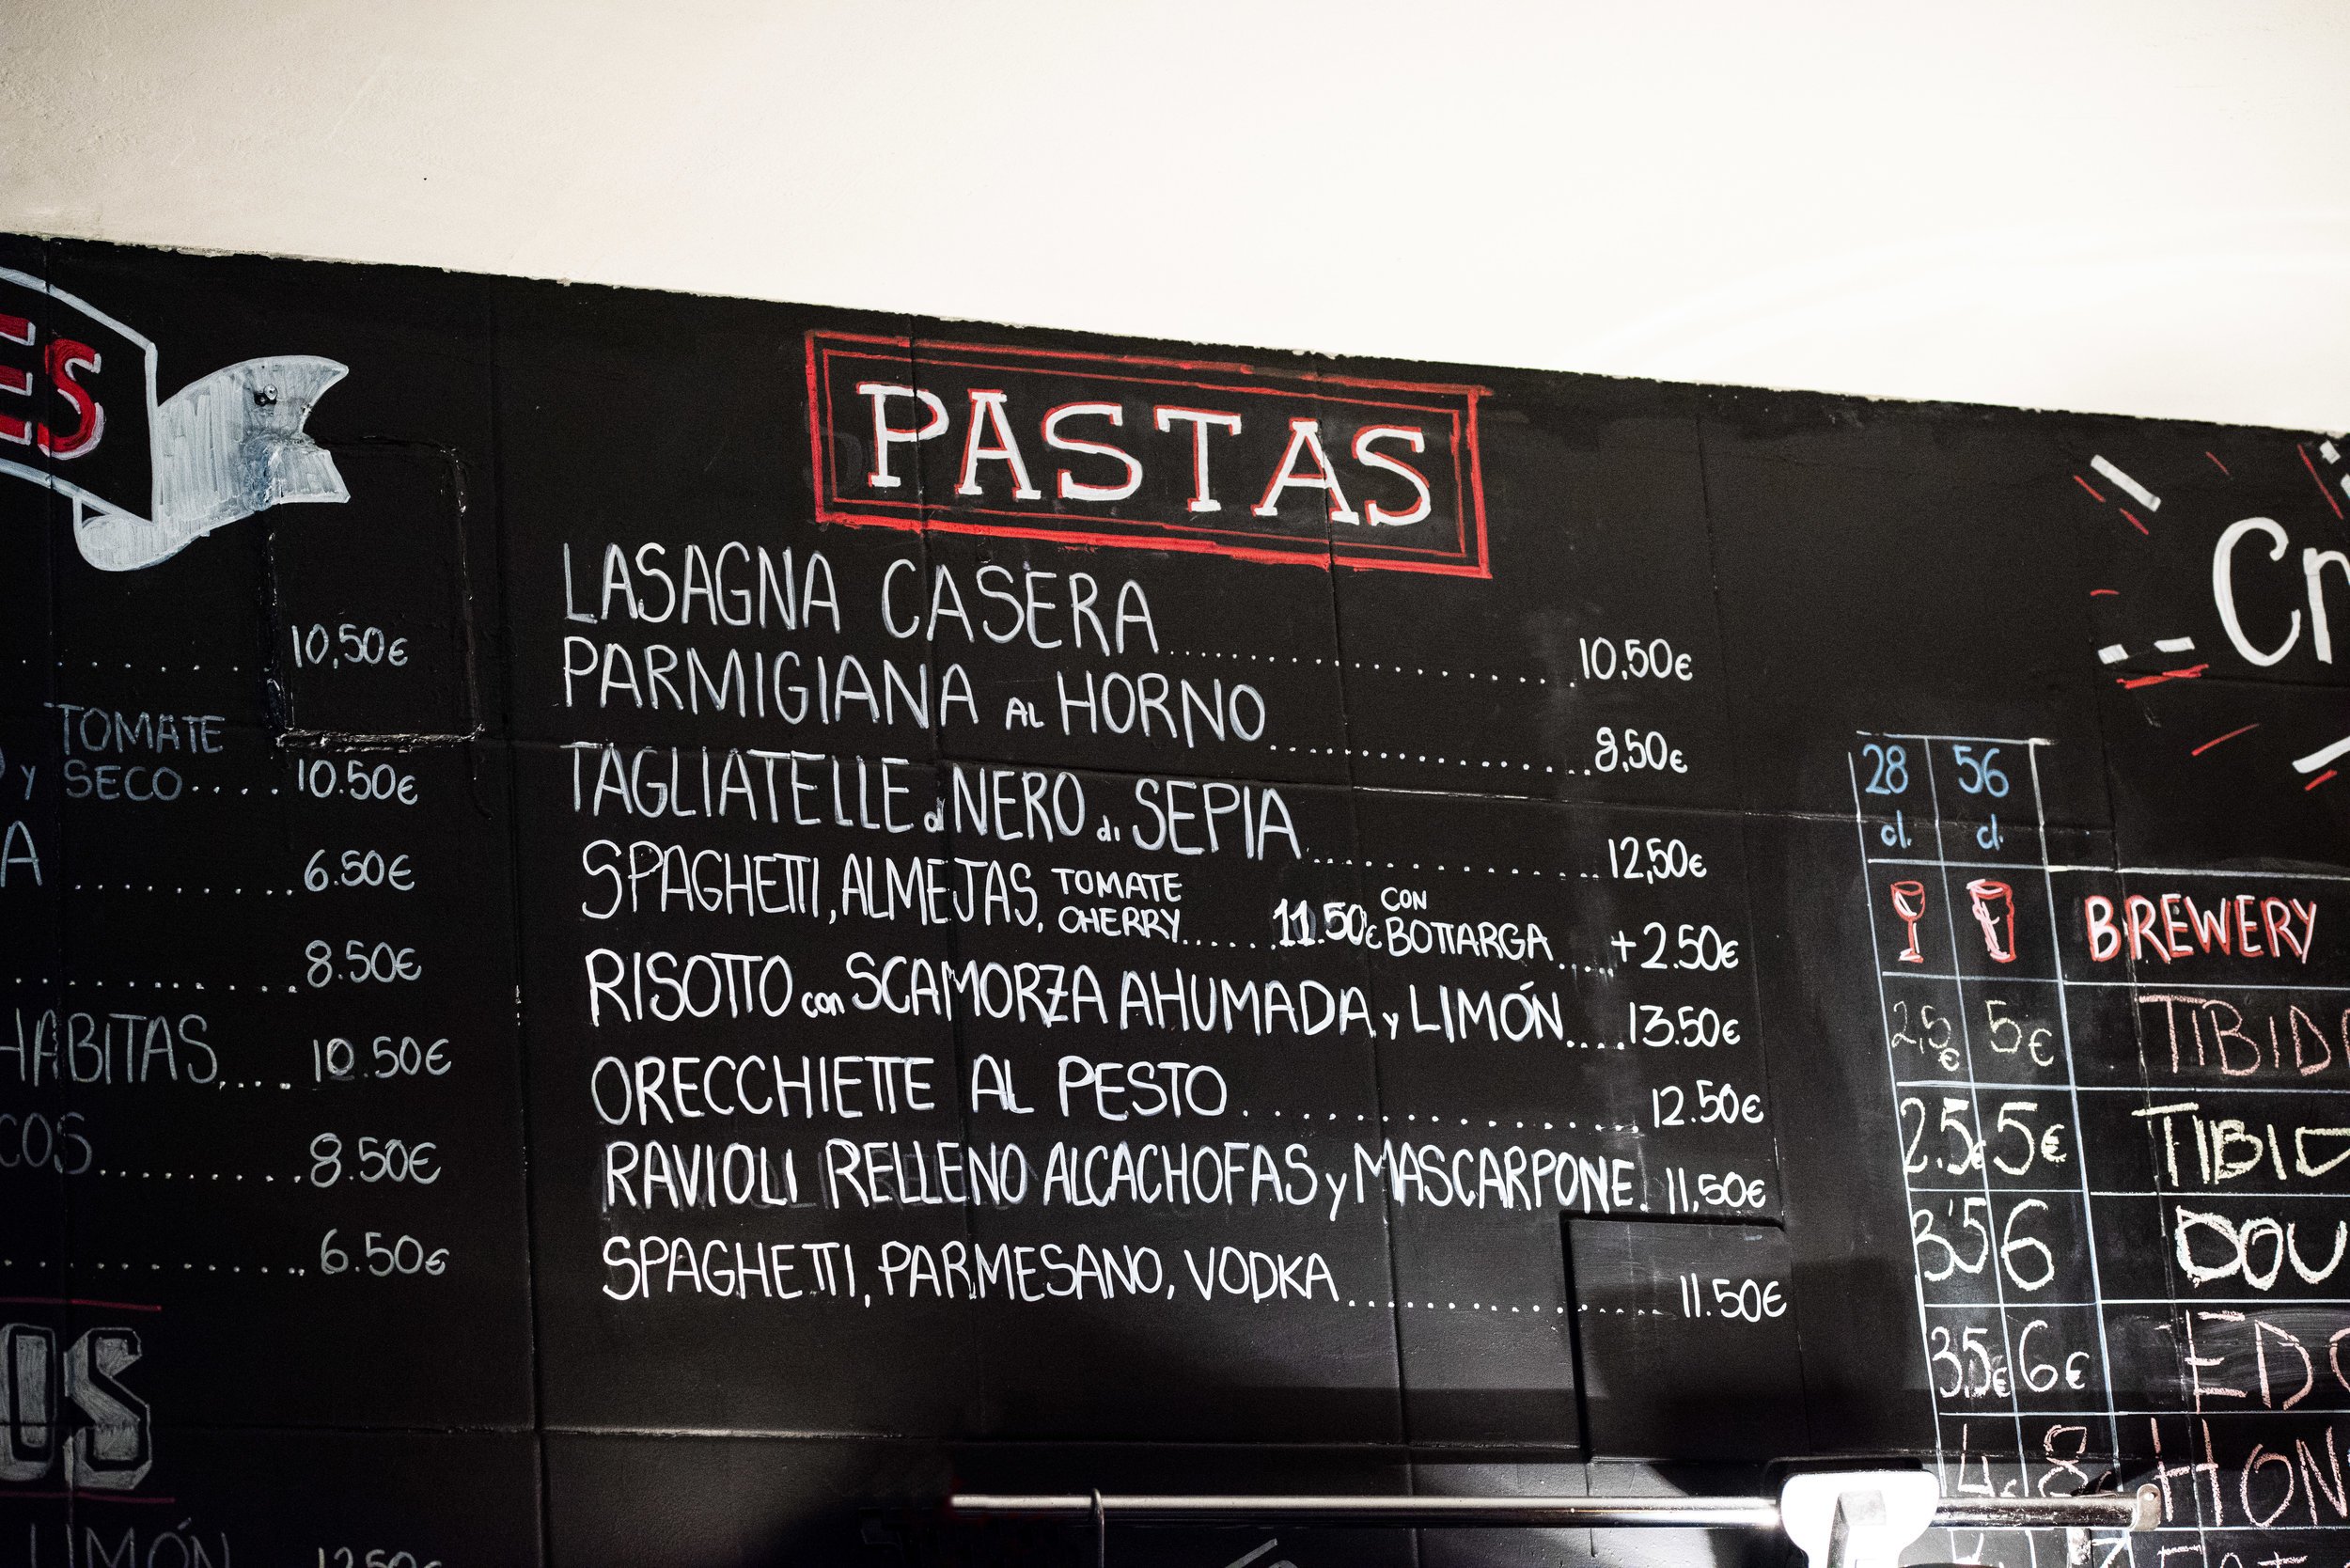 ES
10,50€
TOMATE
y SECO....10.50€
A ........... 6.50€
............ 8.50€
HABITAS.... 10.50€
COS.......... 8.50€
............ 6.50€
OS
LIMÓN 12.50€
PASTAS
LASAGNA CASERA.................. 10.50€
PARMIGIANA AL HORNO.................. 8,50€
TAGLIATELLE al NERO di SEPIA.................. 12,50€
SPAGHETTI, ALMEJAS, TOMATE CHERRY....... 11.50€ CON BOTTARGA..... +2.50€
RISOTTO con SCAMORZA AHUMADA y LIMÓN..... 13.50€
ORECCHIETTE AL PESTO.................. 12.50€
RAVIOLI RELLENO ALCACHOFAS y MASCARPONE. 11,50€
SPAGHETTI, PARMESANO, VODKA.................. 11.50€
Cr
28 cl. 56 cl.
BREWERY
2,5€ 5€ TIBIDO
2.5€ 5€ TIBID
3'5 6 DOU
3.5€ 6€ EDG
4. 8 HON